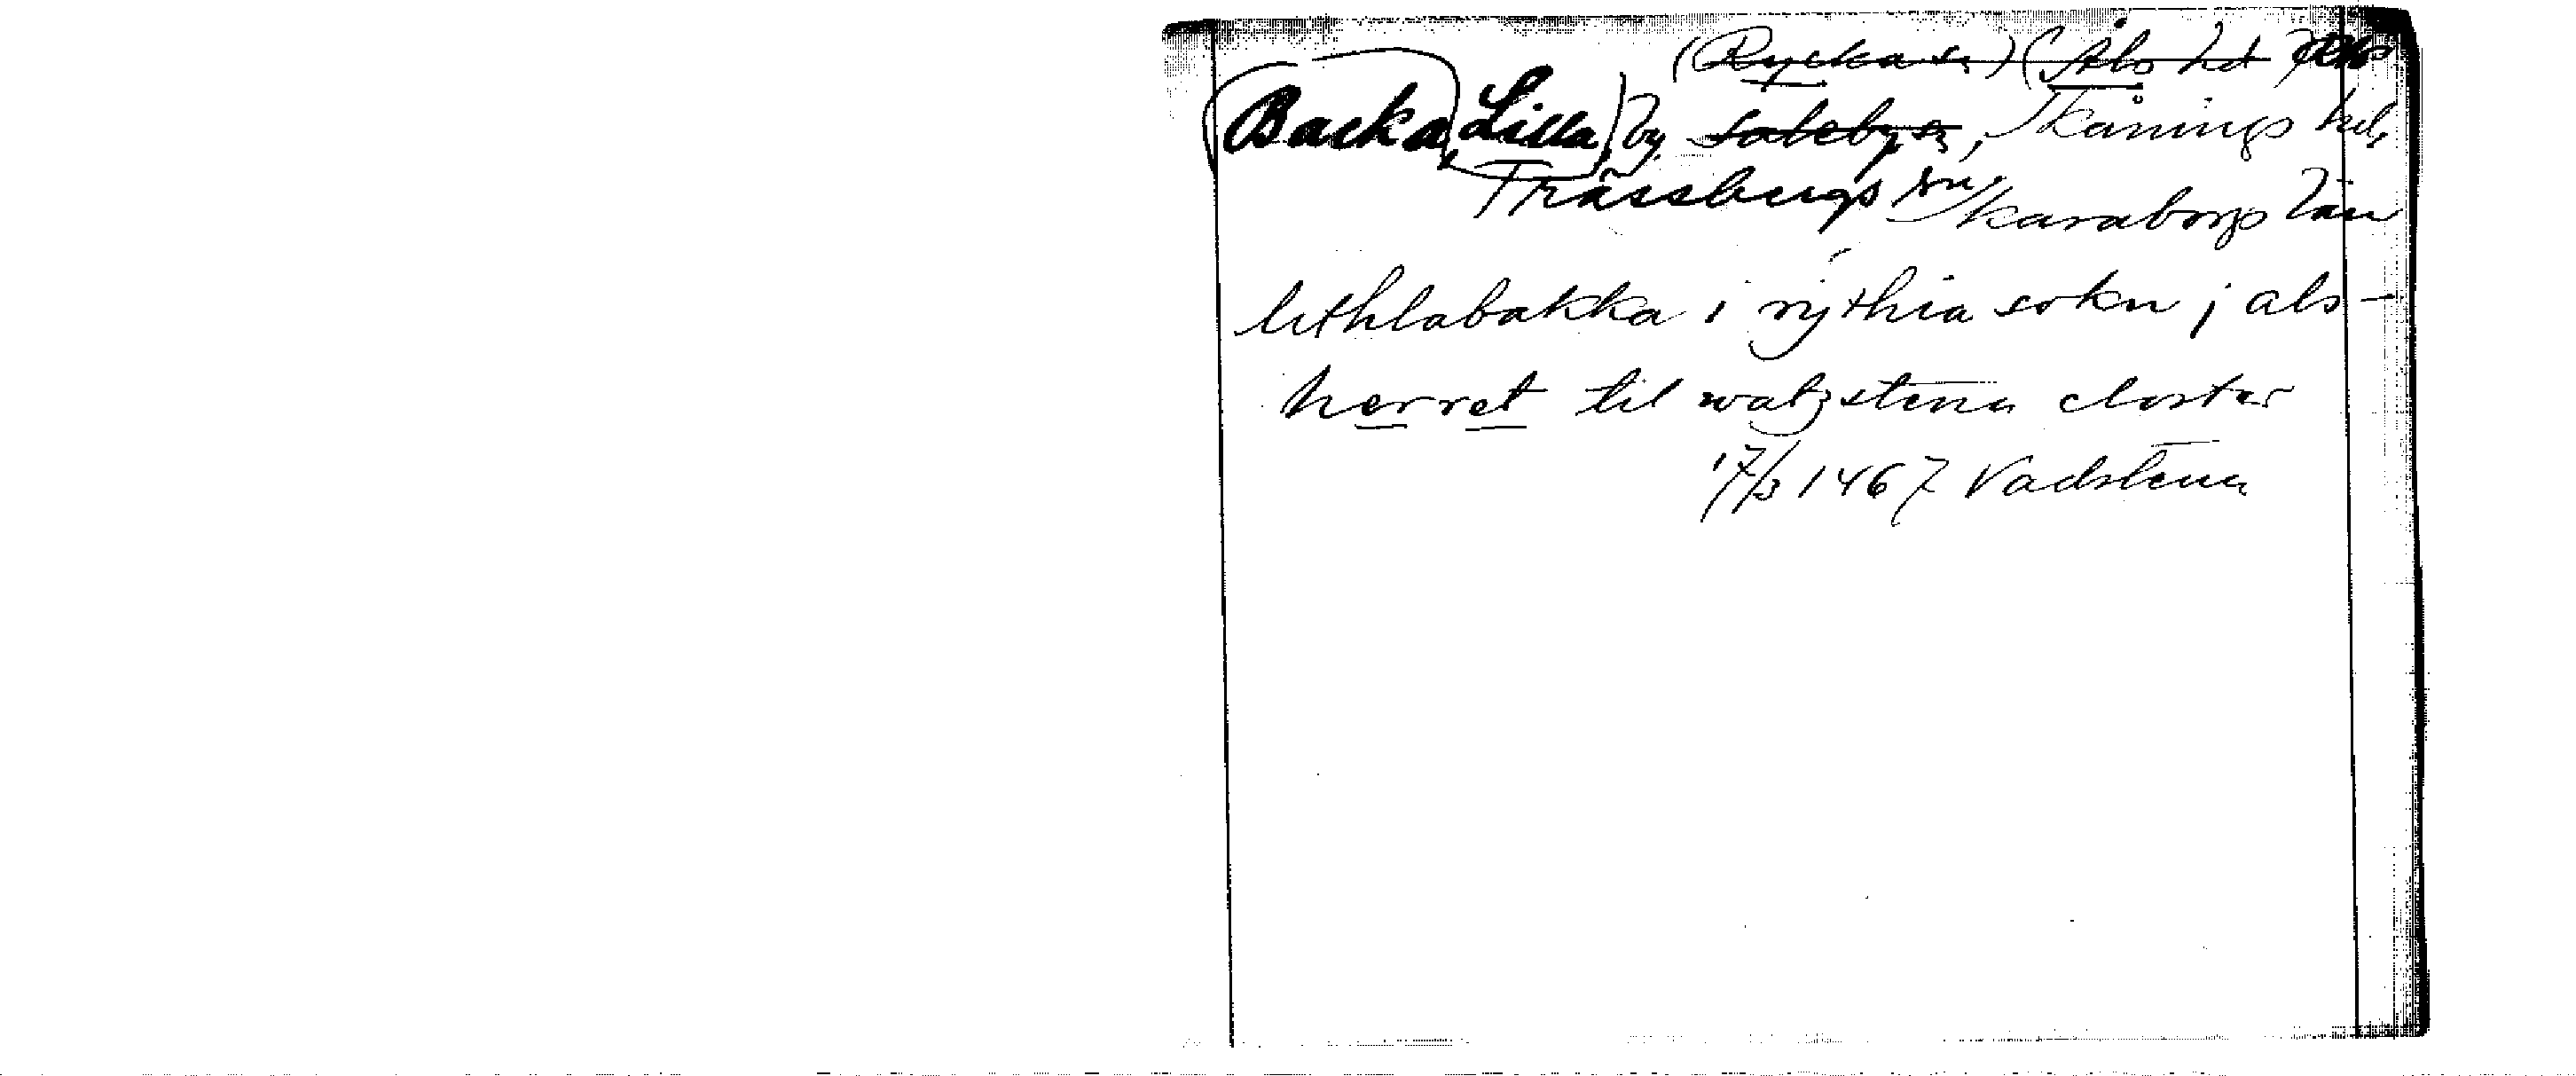 (Rycka sn) (Åls hd
Backa, Lilla, by Saleby sn, Skånings hd,
Trässbergs sn Skaraborgs län
lithlabakka i rythia sokn j als-
herret til watzstena closter
17/3 1467 Vadstena